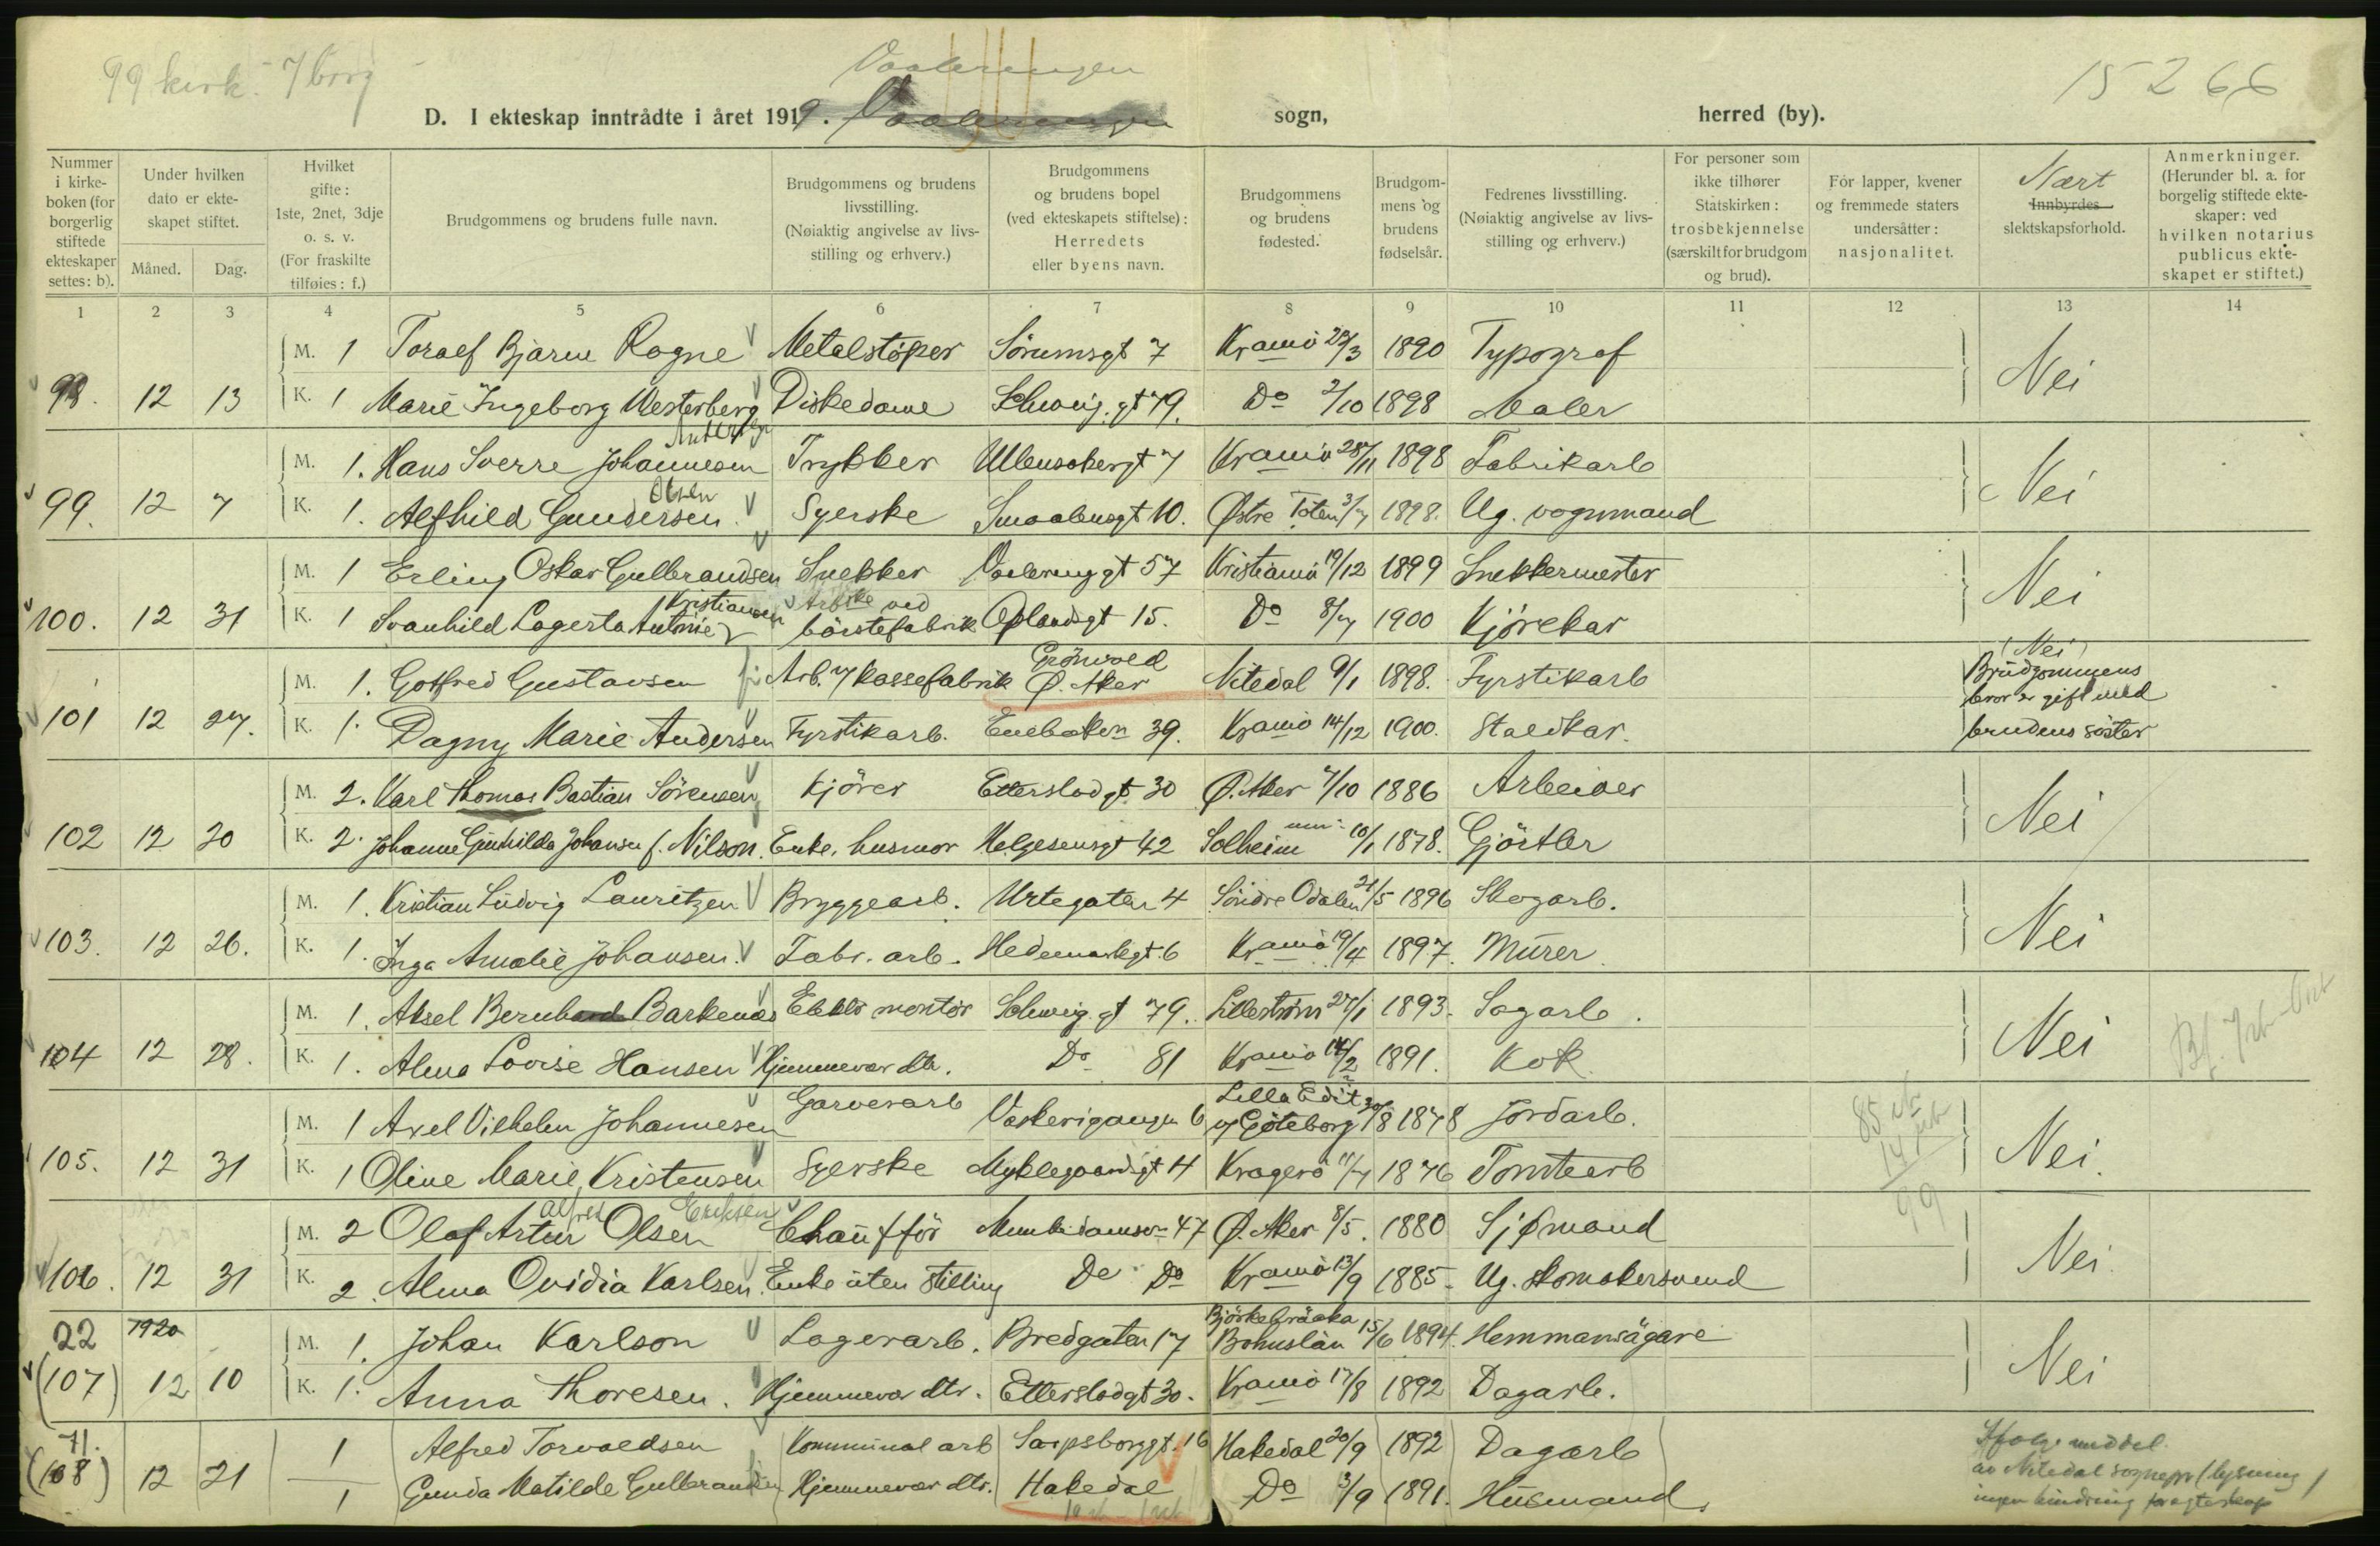 99 kirk. 7 borg
Vaalerengen
15266
D. I ekteskap inntrådte i året 1919. Vaalerengen sogn, herred (by).
Nummer i kirkeboken (for borgerlig stiftede ekteskaper settes: b).
Under hvilken dato er ekteskapet stiftet.
Måned. Dag.
Hvilket gifte: 1ste, 2net, 3dje o. s. v. (For fraskilte tilføies: f.)
Brudgommens og brudens fulle navn.
Brudgommens og brudens livsstilling. (Nøiaktig angivelse av livsstilling og erhverv.)
Brudgommens og brudens bopel (ved ekteskapets stiftelse): Herredets eller byens navn.
Brudgommens og brudens fødested.
Brudgommens og brudens fødselsår.
Fedrenes livsstilling. (Nøiaktig angivelse av livsstilling og erhverv.)
For personer som ikke tilhører Statskirken: trosbekjennelse (særskilt for brudgom og brud).
For lapper, kvener og fremmede staters undersåtter: nasjonalitet.
Nært Innbyrdes slektskapsforhold.
Anmerkninger. (Herunder bl. a. for borgelig stiftede ekteskaper: ved hvilken notarius publicus ekteskapet er stiftet.)
1 2 3 4 5 6 7 8 9 10 11 12 13 14
M. 1 Toralf Bjarne Rogne Metalstøper Sörumsgt 7 Kr.ania 1890 Typograf
98. 12 13 K. 1 Marie Ingeborg Westerberg Diskedame Schweig.gt 79. Do 2/10 1898 Maler Nei
Andersen
M. 1. Hans Sverre Johannesen Trykker Ulensakergt 7 Kr.ania 28/11 1898 Fabrikarb
Olsen
99. 12 7 K. 1. Alfhild Gundersen. Syerske Smaalensgt 10. Østre Toten 3/7 1898. Ug. vognmand Nei
M. 1 Erling Oskar Gulbrandsen Snekker Vaalerenggt 57 Kristiania 19/12 1899 Snekkermester
Kristiansen Arbske ved
100. 12 31 K. 1 Svanhild Lagerta Antonie börstefabrik Oplandsgt 15. Do 8/7 1900 Kjörekar Nei
Grönvold
M. 1. Gotfred Gustavsen Arb. v/ kassefabrik Ø. Aker Nitedal 9/1 1898. Fyrstikarb
(Nei) Brudgommens bror er gift med brudens söster
101 12 27. K. 1. Dagny Marie Andersen Fyrstikarb. Enebakvn 39. Kr.ania 14/12 1900. Staldkar.
M. 2. Karl Thomas Bastian Sörensen Kjörer Etterstadgt. 30 Ø. Aker 7/10 1886 Arbeider
102 12 20 K. 2. Johanne Gunhilda Johansen f. Nilson. Enke, husmor Helgesensgt 42 Solheim 10/1 1878. Gjörtler Nei
M. 1. Kristian Ludvig Lauritzen Bryggearb. Urtegaten 4 Söndre Odalen 21/5 1896 Skogarb.
103. 12 26. K. 1. Inga Amalie Johansen. Fabr. arb. Hedemarkgt. 6 Kr.ania 19/4 1897. Murer. Nei
M. 1. Aksel Bernhard Barkenæs Elektr montör Schweig.gt 79. Lilleström 27/1 1893. Sagarb.
104 12 28. K. 1. Alma Lovise Hansen Hjemmevær. dtr. Do 81 Kr.ania 14/2 1891. Kok Nei
Garverarb Lilla Edit
M. 1 Axel Vilhelm Johannesen Vaskerigangen 6 v/ Göteborg 30/8 1878 Jordarb.
105. 12 31 K. 1 Oline Marie Kristensen Syerske Myklegaardsgt 4 Kragerö 11/7 1876 Tomtearb Nei.
99
Alfred Eriksen
M. 2 Olaf Artur Olsen Chaufför Munkedamsvn 47 Ø. Aker 8/5. 1880 Sjømand
106. 12 31 K. 2. Alma Ovidia Karlsen. Enke uten stilling Do Do Kr.ania 13/9 1885. Ug. skomakersvend Nei.
22 1920 Björkebräcka
M. 1. Johan Karlson Lagerarb. Bredgaten 17 Bohuslän 15/6 1894. Hemmansägare
(107) 12 10 K. 1. Anna Thoresen. Hjemmevær dtr. Etterstadgt 30. Kr.ania 17/8 1892 Dagarb. Nei
71.
1 Alfred Torvaldsen Kommunal arb Sarpsborggt. 16 Hakedal 20/9 1892 Dagarb
(108) 12 21 1 Gunda Matilde Gulbrandsen Hjemmevær dtr. Hakedal Do 3/9 1891. Husmand.
Ifølge meddel.
av Nitedal sognepr (lysning)
ingen hindring for egteskap